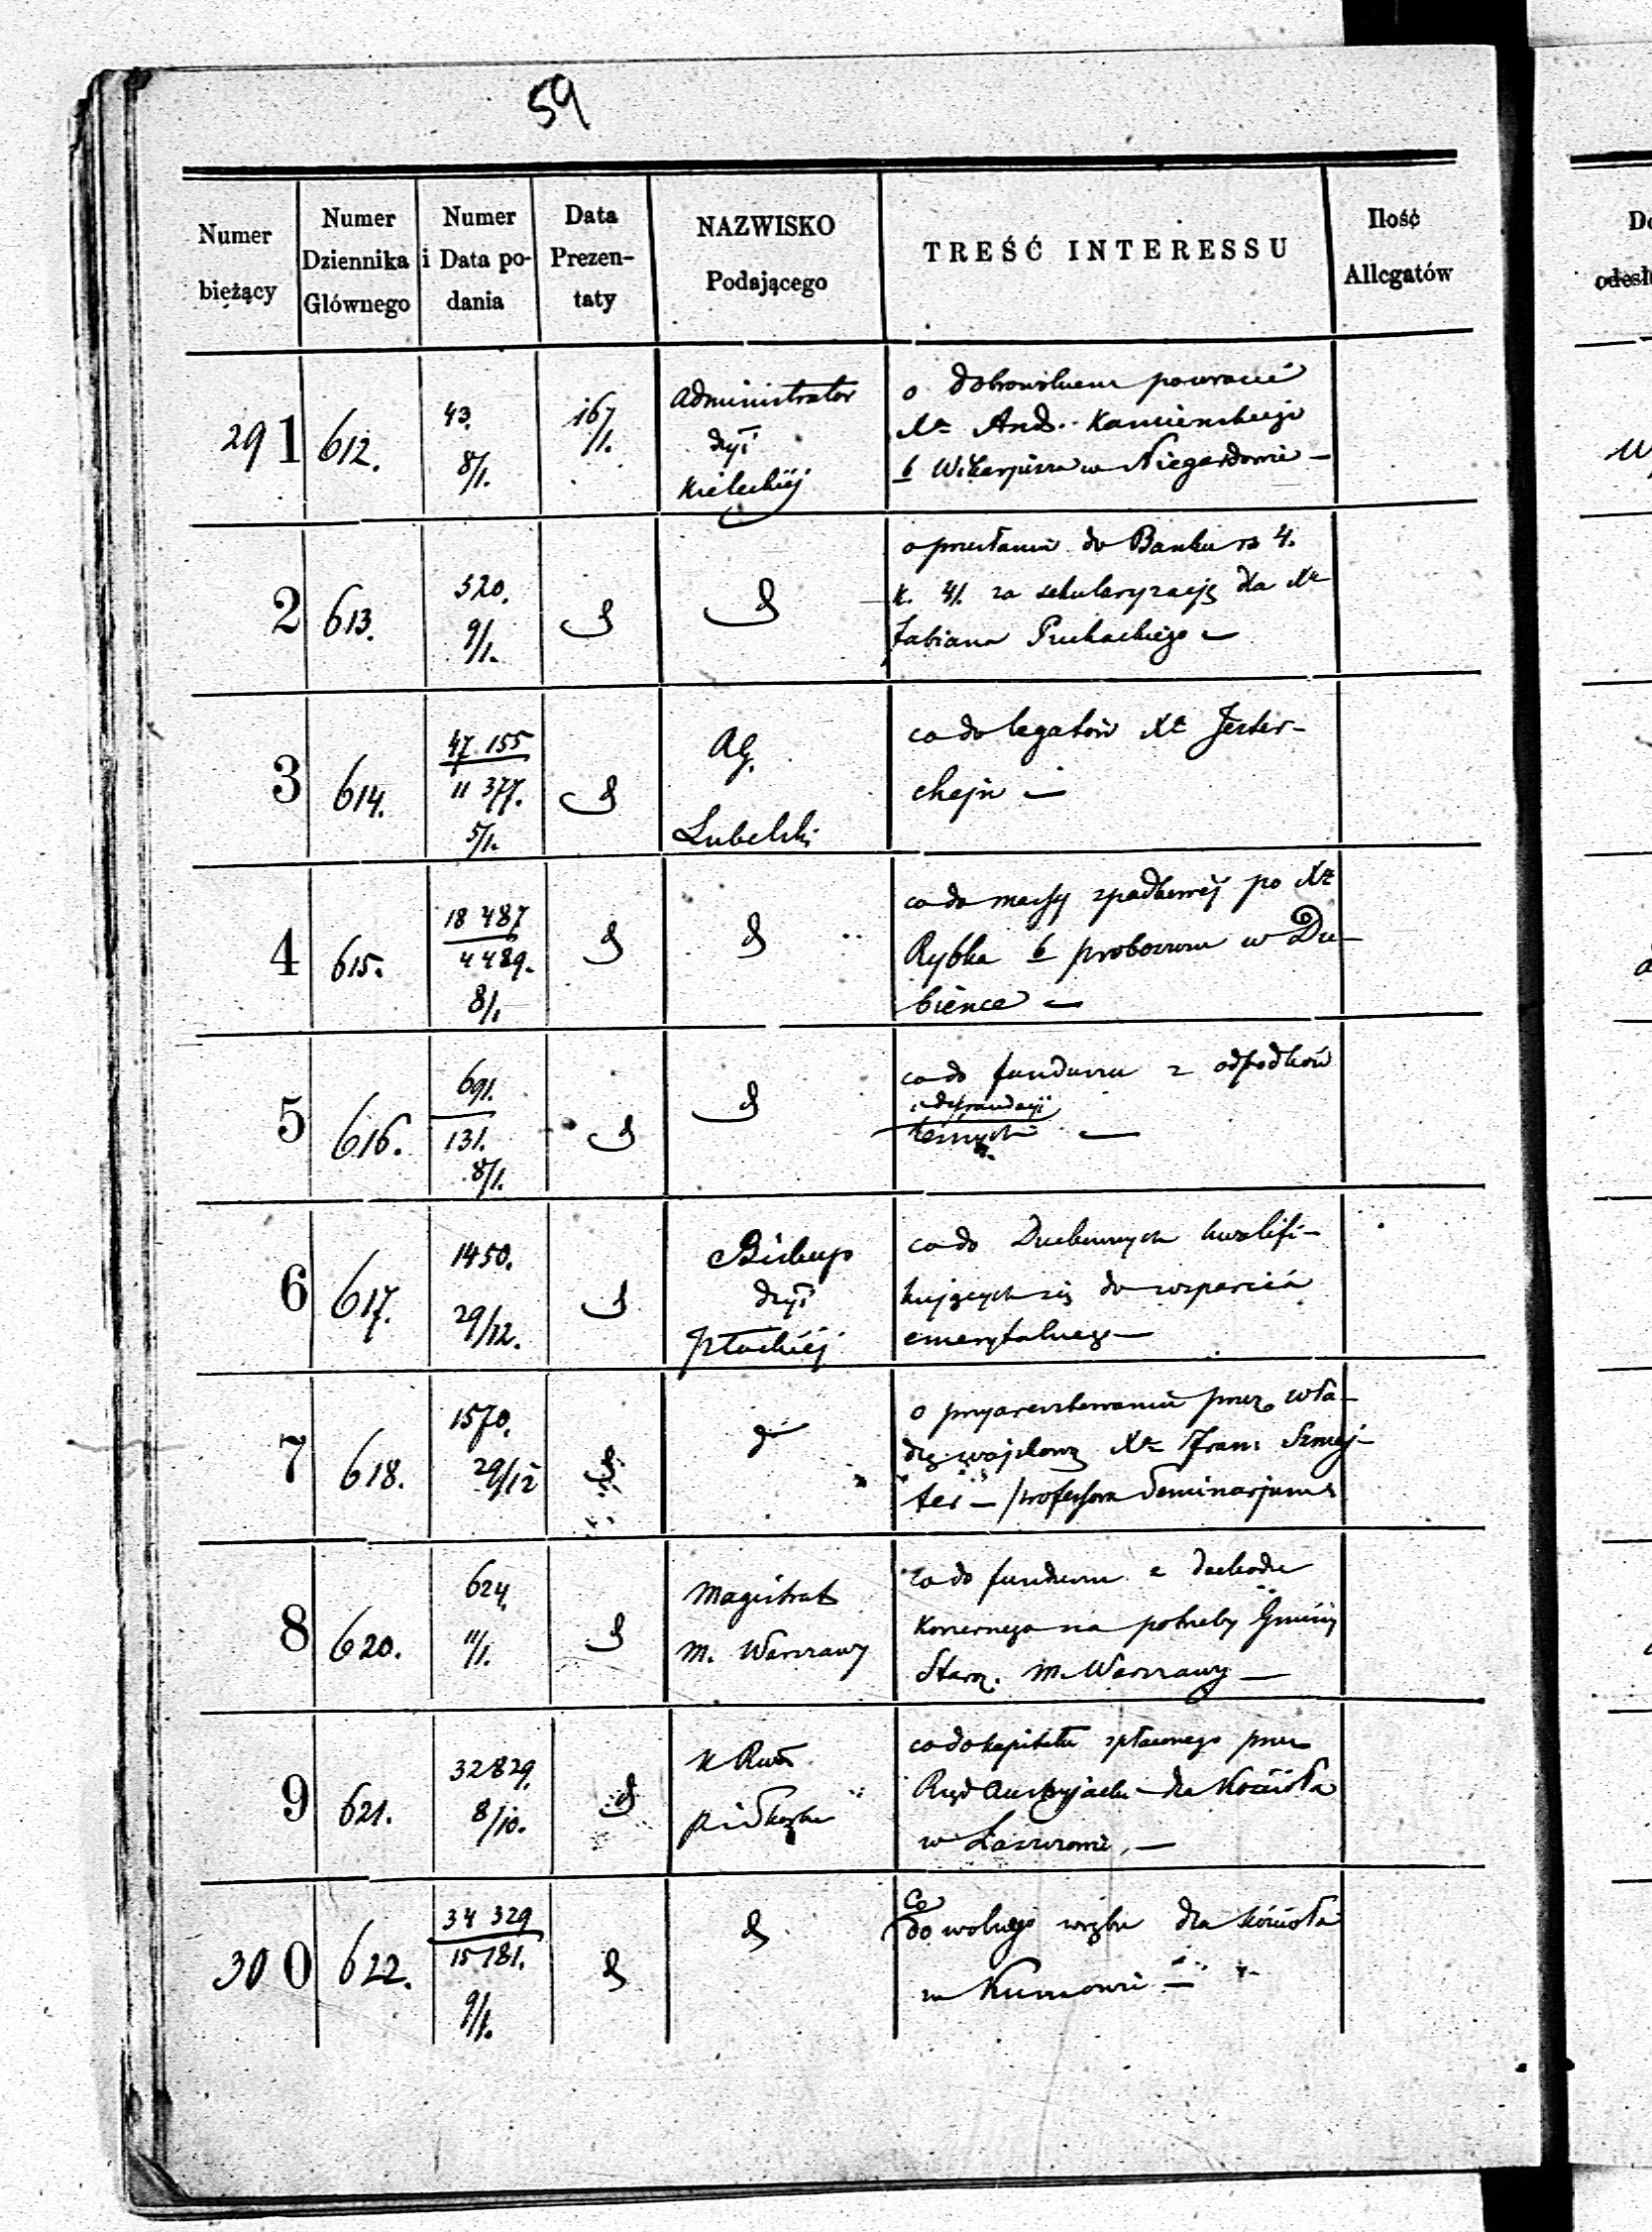 59
Numer bieżący
Numer Dziennika Głównego
Numer i Data podania
Data Prezentaty
NAZWISKO Podającego
TREŚĆ INTERESSU
Ilość Allegatów
291 612. 43. 8/1. 16/1. Administrator dyi Kieleckiej
o dobrowolnem powrocie
Xa And. Kamieńskiego
b Wikaryusza w Niegardowie —
2 613. 320. 9/1.
o przesłaniu do Banku rs 4.
k. 41. za sekularyzację dla Xa
Fabiana Puchackiego —
3 614. 47 155 / 11 377. 5/1. AG. Lubelski
co do legatów Xa Jester-
chejn —
4 615. 18 487 / 4 489. 8/1.
co do massy spadkowéj po Xa
Rybka b proboszczu w Du-
bience —
5 616. 691. / 131. 8/1.
co do funduszu z
leśnych —
6 617. 1450. 29/12. Biskup dyi Płockiéj
co do Duchownych kwalifi-
kujących się do wsparcia
emerytalnego —
7 618. 1570. 29/12
o przyaresztowaniu przez wła-
dzę wojskową Xa Fran.
professora Seminarjum
8 620. 624. 11/1. Magistrat m. Warszawy
co do funduszu z dochodu
Koszernego na potrzeby Gminy
Staroz. m. Warszawy —
9 621. 32829. 8/10.
co do kapitału spłaconego przez
Rząd Austryjacki dla Kościoła
w
300 622. 34 329 / 15 181. 9/1.
Co
do wolnego wrębu dla kościoła
w